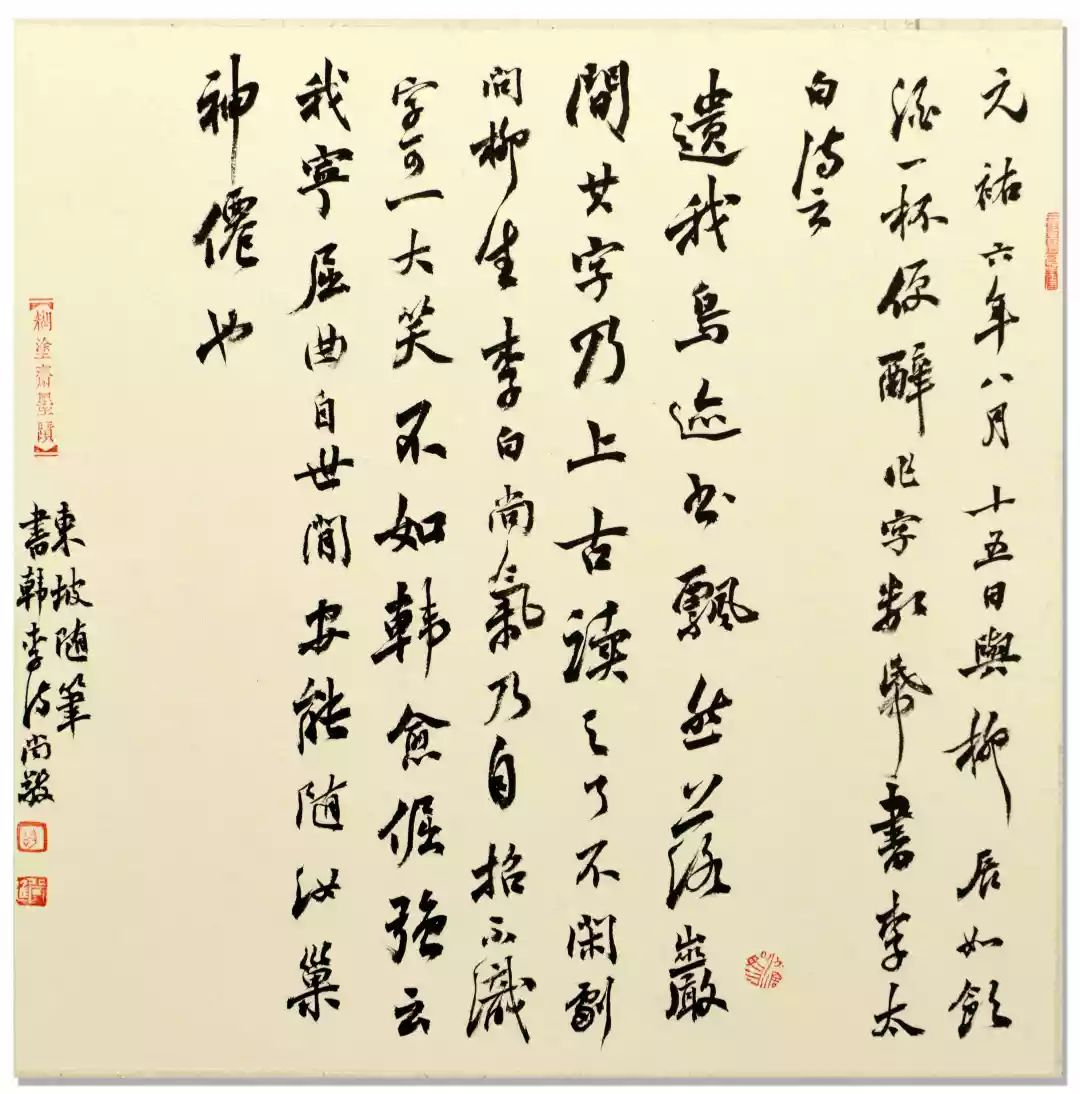 元祐六年八月十五日與柳展如飲
酒一杯便醉作字數帋書李太
白詩云
遺我鳥迹書飄然落巖
間其字乃上古讀之了不閑劇
問柳生李白尚氣乃自招不識
字可一大笑不如韓愈倔強云
我寧屈曲自世間安能隨汝巢
神僊也
東坡隨筆
書韓李詩尚敬
糊塗齋墨蹟